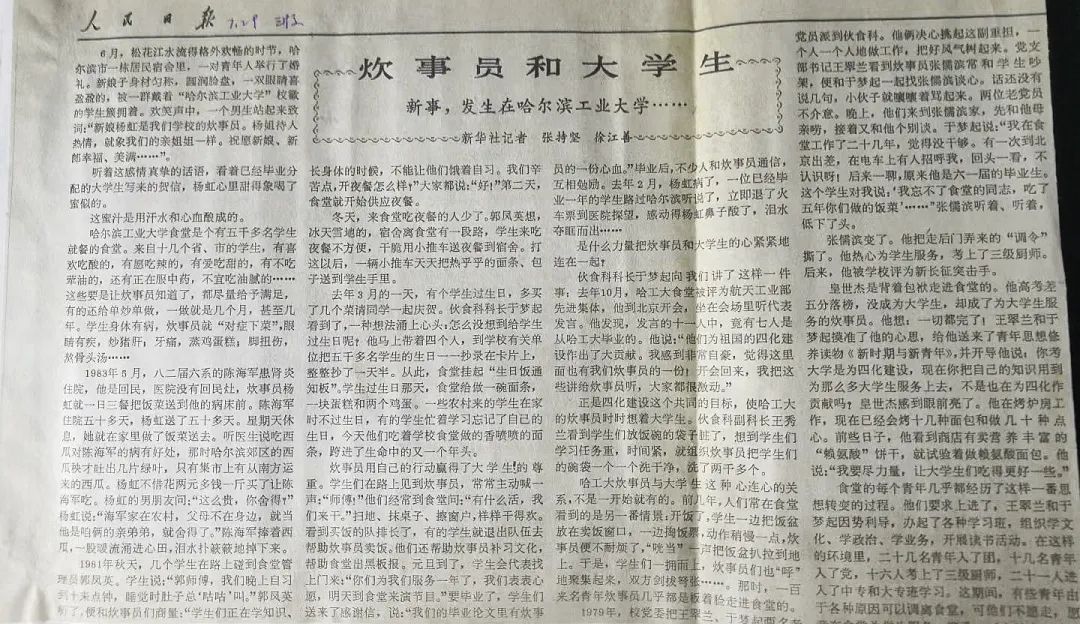 人民日报
炊事员和大学生
新事，发生在哈尔滨工业大学……
新华社记者 张持坚 徐江善
6月，松花江水流得格外欢畅的时节，哈
尔滨市一栋居民宿舍里，一对青年人举行了婚
礼。新娘子身材匀称，圆润脸盘，一双眼睛喜
盈盈的，被一群戴着“哈尔滨工业大学”校徽
的学生簇拥着。欢笑声中，一个男生站起来致
词：“新娘杨虹是我们学校的炊事员。杨姐待人
热情，就象我们的亲姐姐一样。祝愿新娘、新
郎幸福、美满……”。
听着这感情真挚的话语，看着已经毕业分
配的大学生写来的贺信，杨虹心里甜得象喝了
蜜似的。
这蜜汁是用汗水和心血酿成的。
哈尔滨工业大学食堂是个有五千多名学生
就餐的食堂。来自十几个省、市的学生，有喜
欢吃酸的，有愿吃辣的，有爱吃甜的，有不吃
荤油的，还有正在服中药，不宜吃油腻的……
这些要是让炊事员知道了，都尽量给予满足，
有的还给单炒单做，一做就是几个月，甚至几
年。学生身体有病，炊事员就“对症下菜”，眼
睛有疾，炒猪肝；牙痛，蒸鸡蛋糕；脚扭伤，
熬骨头汤……
1983年5月，八二届六系的陈海军患肾炎
住院，他是回民，医院没有回民灶，炊事员杨
虹就一日三餐把饭菜送到他的病床前。陈海军
住院五十多天，杨虹送了五十多天。星期天休
息，她就在家里做了饭菜送去。听医生说吃西
瓜对陈海军的病有好处，那时哈尔滨郊区的西
瓜秧才吐出几片绿叶，只有集市上有从南方运
来的西瓜。杨虹不惜花两元多钱一斤买了让陈
海军吃。杨虹的男朋友问：“这么贵，你舍得？”
杨虹说：“海军家在农村，父母不在身边，就当
他是咱俩的亲弟弟，就舍得了。”陈海军捧着西
瓜，一股暖流涌进心田，泪水扑簌簌地掉下来。
1981年秋天，几个学生在路上碰到食堂管
理员郭凤英。学生说：“郭师傅，我们晚上自习
到十来点钟，睡觉时肚子总‘咕咕’叫。”郭凤英
听了，便和炊事员们商量：“学生们正在学知识、
长身体的时候，不能让他们饿着自习。我们辛
苦点，开夜餐怎么样？”大家都说：“好！”第二天，
食堂就开始供应夜餐。
冬天，来食堂吃夜餐的人少了。郭凤英想，
冰天雪地的，宿舍离食堂有一段路，学生来吃
夜餐不方便，干脆用小推车送夜餐到宿舍。打
这以后，一辆小推车天天把热乎乎的面条、包
子送到学生手里。
去年3月的一天，有个学生过生日，多买
了几个菜请同学一起庆贺。伙食科科长于梦起
看到了，一种想法涌上心头：怎么没想到给学生
过生日呢？他马上带着四个人，到学校有关单
位把五千多名学生的生日一一抄录在卡片上，
整整抄了一天半。从此，食堂挂起“生日饭通
知板”。学生过生日那天，食堂给做一碗面条，
一块蛋糕和两个鸡蛋。一些农村来的学生在家
时不过生日，有的学生忙着学习忘记了自己的
生日，今天他们吃着学校食堂做的香喷喷的面
条，跨进了生命中的又一个年头。
炊事员用自己的行动赢得了大学生的尊
重。学生们在路上见到炊事员，常常主动喊一
声：“师傅！”他们经常到食堂问：“有什么活，我
们来干。”扫地、抹桌子、擦窗户，样样干得欢。
看到买饭的队排长了，有的学生就退出队伍去
帮助炊事员卖饭。他们还帮助炊事员补习文化，
帮助食堂出黑板报。元旦到了，学生会代表找
上门来：“你们为我们服务一年了，我们表表心
愿，明天到食堂来演节目。”要毕业了，学生们
送来了感谢信，说：“我们的毕业论文里有炊事
员的一份心血。”毕业后，不少人和炊事员通信，
互相勉励。去年2月，杨虹病了，一位已经毕
业一年的学生路过哈尔滨听说了，立即退了火
车票到医院探望，感动得杨虹鼻子酸了，泪水
夺眶而出……
是什么力量把炊事员和大学生的心紧紧地
连在一起？
伙食科科长于梦起向我们讲了这样一件
事，去年10月，哈工大食堂被评为航天工业部
先进集体，他到北京开会，坐在会场里听代表
发言。他发现，发言的十一人中，竟有七人是
从哈工大毕业的。他说：“他们为祖国的四化建
设作出了大贡献。我感到非常自豪，觉得这里
面也有我们炊事员的一份！开会回来，我把这
些讲给炊事员听，大家都很激动。”
正是四化建设这个共同的目标，使哈工大
的炊事员时时想着大学生。伙食科副科长王秀
兰看到学生们放饭碗的袋子脏了，想到学生们
学习任务重，时间紧，就组织炊事员把学生们
的碗袋一个一个洗干净，洗了两千多个。
哈工大炊事员与大学生这种心连心的关
系，不是一开始就有的。前几年，人们常在食堂
看到的是另一番情景：开饭了，学生一边把饭盆
放在卖饭窗口，一边掏饭票，动作稍慢一点，炊
事员便不耐烦了，“咣当”一声把饭盆扒拉到地
上。于是，学生们一拥而上，炊事员们也“呼”
地聚集起来，双方剑拔弩张……。那时，一百
来名青年炊事员几乎都是板着脸走进食堂的。
1979年，校党委把王翠兰、于梦起两名老
党员派到伙食科。他俩决心挑起这副重担，一
个人一个人地做工作，把好风气树起来。党支
部书记王翠兰看到炊事员张儒滨常和学生吵
架，便和于梦起一起找张儒滨谈心。话还没有
说几句，小伙子就嚷嚷着骂起来。两位老党员
不介意。晚上，他们来到张儒滨家，先和他母
亲唠，接着又和他个别谈。于梦起说：“我在食
堂工作了二十几年，觉得没干够。有一次到北
京出差，在电车上有人招呼我，回头一看，不
认识呀！后来一聊，原来他是六一届的毕业生。
这个学生对我说：‘我忘不了食堂的同志，吃了
五年你们做的饭菜’……”张儒滨听着、听着，
低下了头。
张儒滨变了。他把走后门弄来的“调令”
撕了。他热心为学生服务，考上了三级厨师。
后来，他被学校评为新长征突击手。
皇世杰是背着包袱走进食堂的。他高考差
五分落榜，没成为大学生，却成了为大学生服
务的炊事员。他想：一切都完了！王翠兰和于
梦起摸准了他的心思，给他送来了青年思想修
养读物《新时期与新青年》，并开导他说：你考
大学是为四化建设，现在你把自己的知识用到
为那么多大学生服务上去，不是也在为四化作
贡献吗？皇世杰感到眼前亮了。他在烤炉房工
作，现在已经会烤十几种面包和做几十种点
心。前些日子，他看到商店有卖营养丰富的
“赖氨酸”饼干，就试验着做赖氨酸面包。他
说：“我要尽力量，让大学生们吃得更好一些。”
食堂的每个青年几乎都经历了这样一番思
想转变的过程。他们要求上进了，王翠兰和于
梦起因势利导，办起了各种学习班，组织学文
化、学政治、学业务，开展读书活动。在这样
的环境里，二十几名青年入了团，十几名青年
入了党，十六人考上了三级厨师，二十一人进
入了中专和大专进学习。这期间，有些青年由
于各种原因可以调离食堂，可他们不愿走，愿